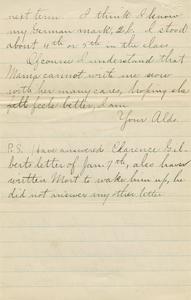 next term. I think I know
my German mark, 2.6. I stood
about 4th or 5th in the class.
Of course I understand that
Mama cannot write me now
with her many cares, hoping she
feels better, I am
Your Aldo.
P.S. I have answered Clarence Gil-
bert's letter of Jan. 7th, also have
written Mort to wake him up, he
did not answer my other letter